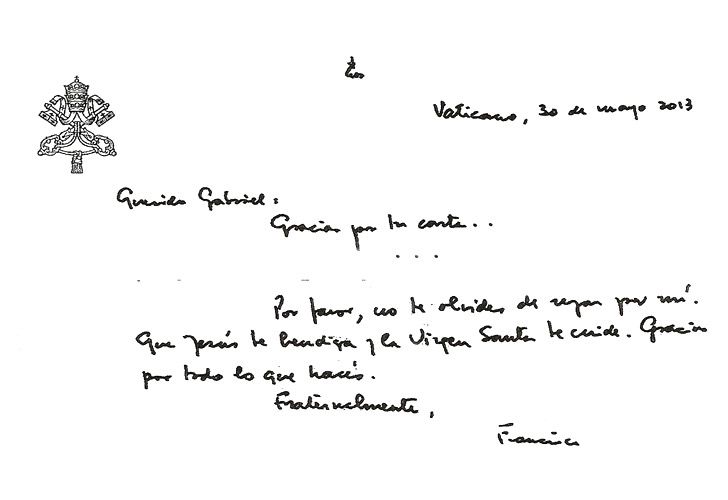 Vaticano, 30 de mayo 2013
Querido Gabriel:
Gracias por tu carta..
...
Por favor, no te olvides de rezar por mí.
Que Jesús te bendiga y la Virgen Santa te cuide. Gracias
por todo lo que hacés.
Fraternalmente,
Francisco